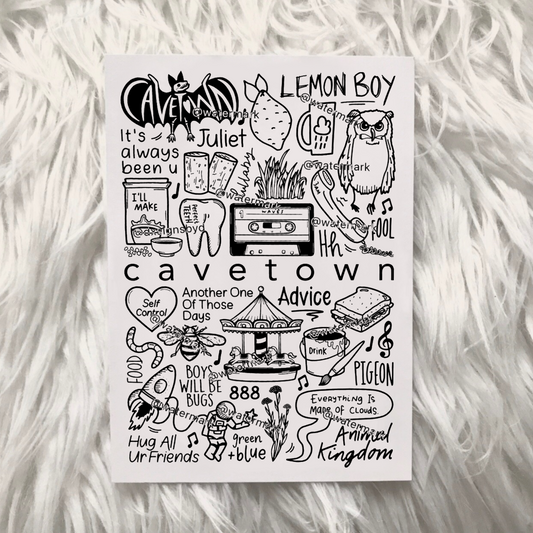 CAVETOWN
LEMON BOY
@watermark
@watermark
It's
always
been u
Juliet
lullaby
@watermark
I'LL
MAKE
TEETH
@watermark
WAVES
@watermark
FOOL
Hh
cavetown
Self
Control
Another One
Of Those
Days
Advice
Drink
FOOD
BOYS
WILL BE
BUGS
888
PIGEON
EVERYTHING IS
MADE OF CLOUDS.
@watermark
@watermark
@watermark
Hug All
Ur Friends
green
+blue
Animal
Kingdom